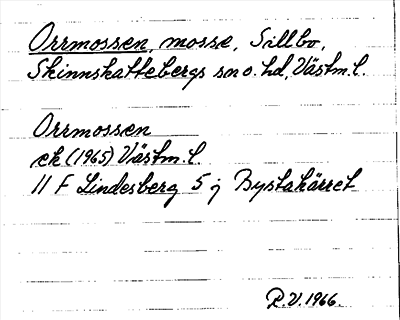 Orrmossen, mosse, Sillbo,
Skinnskattebergs sn o. hd, Västm. l.
Orrmossen
ek (1965) Västm. l.
11 F Lindesberg 5 j Bystakärret
R.V. 1966.